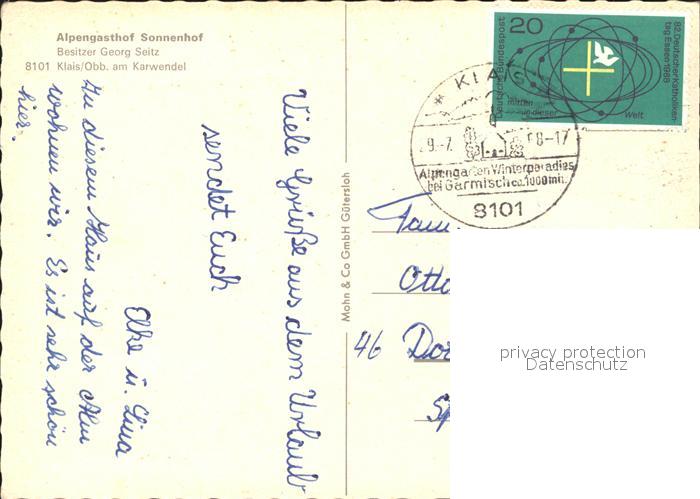 Alpengasthof Sonnenhof
Besitzer Georg Seitz
8101 Klais/Obb. am Karwendel
Viele Grüße aus dem Urlaub
sendet Euch
Elke u. Lina
Zu diesem Haus auf der Alm
wohnen wir. Es ist sehr schön
hier.
Mohn & Co GmbH Gütersloh
20
Deutsche Bundespost
82. Deutscher Katholiken
tag Essen 1968
mitten
in dieser
Welt
KLAIS
9.-7.
68-17
Alpengarten Winterparadies
bei Garmisch ca. 1000 m ü.
8101
Fam.
Otto
46 Dor
privacy protection
Datenschutz